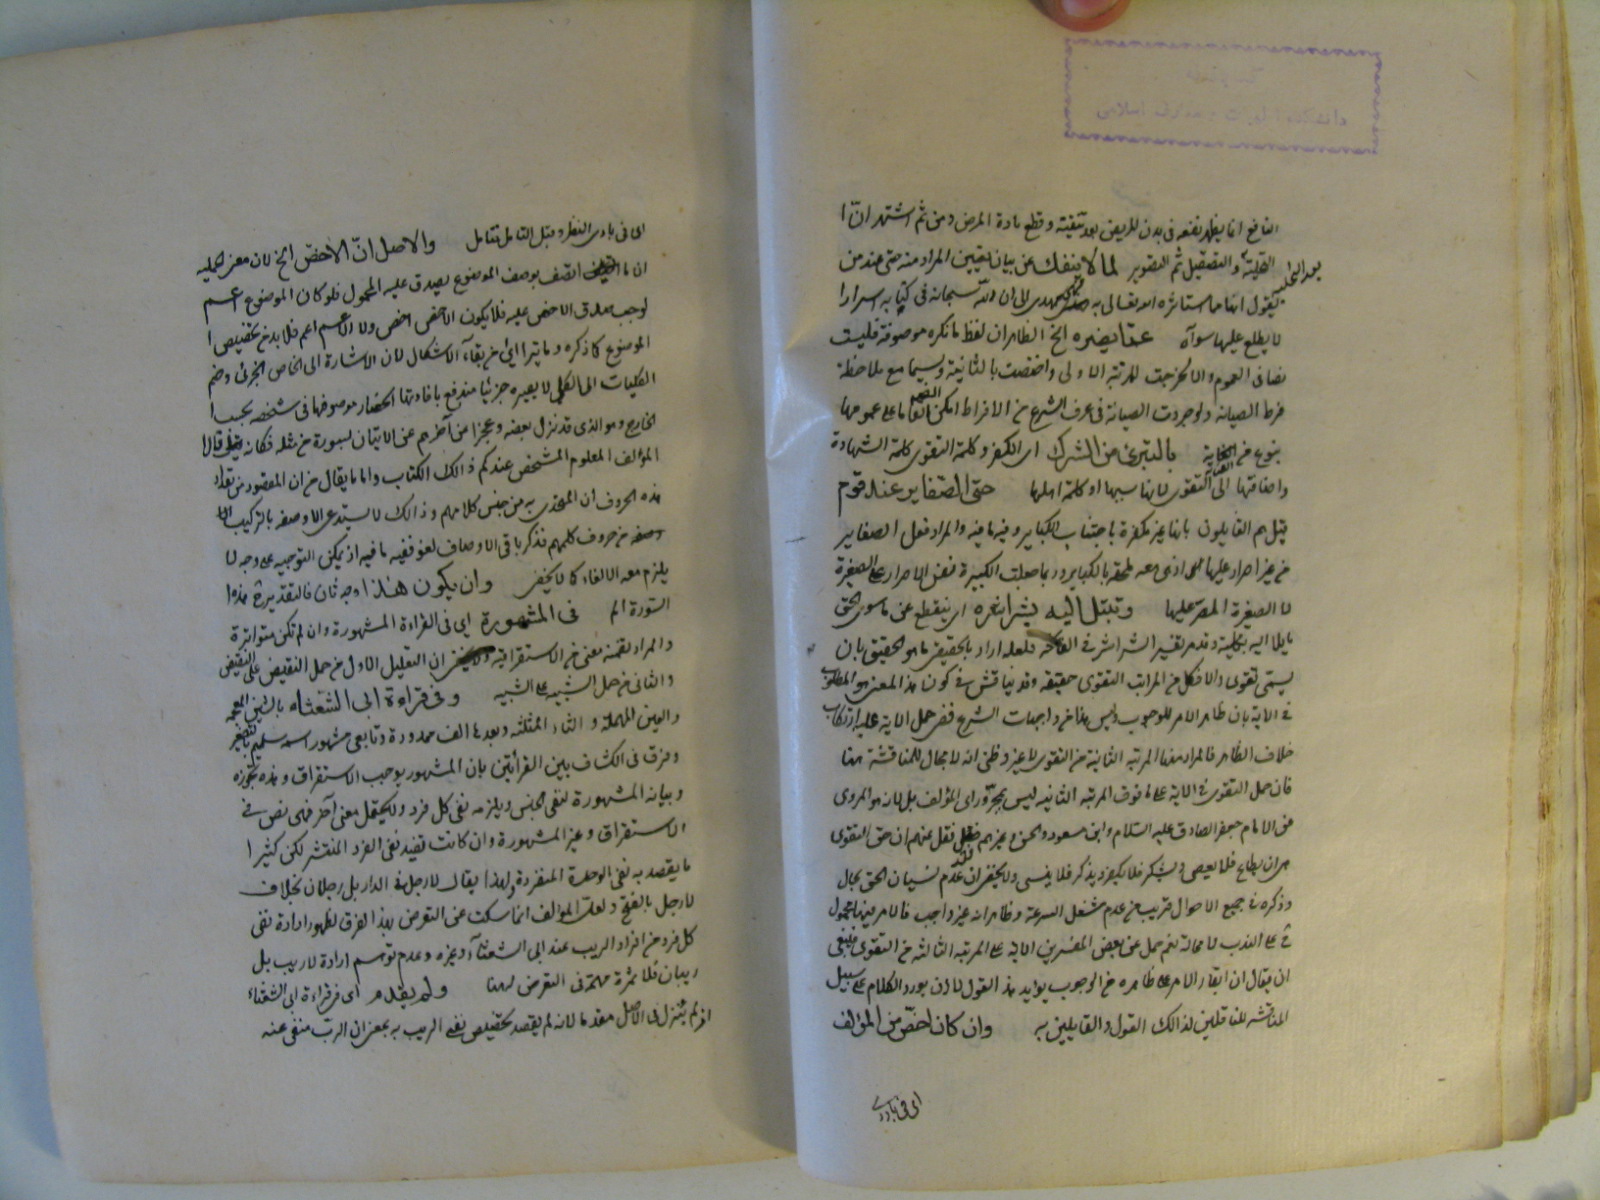 النافع انما يظهر نفعه فى بدن المريض بعد تنقيته وقطع مادة المرض ومن ثم اشتهر انّ
التخلية والتصقيل ثم التصوير لما لا ينفك عن بيان تعيين المراد منه حتى عند من
بعد التخلية
يقول انها مما استاثره الله تعالى به الى ان لله سبحانه فى كتابه اسرارا
لا يطلع عليها سواه عمّا يضره الخ الظاهر ان لفظ ما نكرة موصوفة فليست
نصا فى العموم والا لخرجت المرتبة الاولى واختصت بالثانية وسيما مع ملاحظة
فرط الصيانة ولو جردت الصيانة فى عرف الشرع من الافراط امكن ما على عمومها
بنوع من العناية بالتبرئ من الشرك اى الكفر وكلمة التقوى كلمة الشهادة
واضافتها الى التقوى لانها سببها او كلمة اهلها حتى الصغاير عند قوم
قيل هم القايلون بانها غير مكفرة باجتناب الكباير وفيه ما فيه والمراد فعل الصغاير
من غير اصرار عليها اذ هى معه ملحقة بالكباير فعن الاصرار على الصغيرة
لا الصغيرة المصر عليها وتبتل اليه بشراشره اى ينقطع عن ما سوى الحق
مايلا اليه بكليته وقد مر تفسير الشراشر فى الفاتحة فلعله اراد بالحقيقى ما هو الحقيق بان
يسمى تقوى والا فكل من المراتب التقوى حقيقة وقد يناقش فى كون هذا المعنى هو المطلوب
فى الاية بان ظاهر الامر للوجوب وليس هذا من واجبات الشرع ففى حمل الاية عليه ارتكاب
خلاف الظاهر فالمراد هنا المرتبة الثانية من التقوى لا غير وظنى انه لا مجال للمناقشة هنا
فان حمل التقوى فى الاية على ما فوق المرتبة الثانية ليس بمجرد راى المؤلف بل لانه هو المروى
عن الامام جعفر الصادق عليه السلام وابن مسعود والحسن وغيرهم نقل عنهم ان حق التقوى
هو ان يطاع فلا يعصى ويشكر فلا يكفر ويذكر فلا ينسى ولا يخفى ان عدم نسيان الحق بحال
وذكره فى جميع الاحوال قريب من عدم شغل السر عنه وظاهر انه غير واجب فالامر فيها محمول
على الندب لا محالة نعم حمل عن بعض المفسرين الاية على المرتبة الثالثة من التقوى فينبغى
ان يقال ان ابقاء الامر على ظاهره من الوجوب يوايد هذا القول لا ان يورد الكلام على سبيل
المناقشة للناقلين لذالك القول والقايلين به وان كان اخصّ من المؤلف
اى فى بادى
اى فى بادى النظر وقبل التامل فتامل والاصل انّ الاخصّ الخ لان معنى الحملية
ان ما اتصف بوصف الموضوع يصدق عليه المحمول فلو كان الموضوع اعم
لوجب صدق الاخص عليه فلا يكون الاخص اخص ولا الاعم اعم فلا بد من تخصيص
الموضوع كما ذكره وما يترا اى من بقاء الاشكال لان الاشارة الى الخاص الجزئى وضم
الكليات الى الكلى لا يصيره جزئيا مندفع بافادتها انحصار موصوفها فى شخصه بحسب
الخارج وهو الذى قد نزل بعضه وعجزوا عن آخرهم عن الاتيان بسورة من مثله فكانه قال
المؤلف المعلوم المشخص عندكم ذالك الكتاب واما ما يقال من ان المقصود من تعداد
هذه الحروف ان المتحدى به من جنس كلامهم وذالك لا يستدعى الا وصفه بالتركيب
من حروف كلمهم فذكر باقى الاوصاف لغو ففيه ما فيه اذ يمكن التوجيه على وجه لا
يلزم معه الالغاء كما لا يخفى وان يكون هذا وجه ثان فالتقدير هذا
السورة الم فى المشهورة اى فى القراءة المشهورة وان لم تكن متواترة
والمراد تضمنه معنى من الاستغراقية ان التعليل الاول من حمل النقيض على النقيض
والثانى من حمل الشبيه على الشبيه وفى قراءة ابى الشعثاء بالشين المعجمة
والعين المهملة والثاء المثلثة وبعدها الف ممدودة تابعى مشهور اسمه سليم بالتصغير
وفرق فى الكشاف بين القرائتين بان المشهور يوجب الاستغراق وهذه تجوزه
وبيانه المشهورة لنفى الجنس ويلزمه نفى كل فرد ولا يحتمل معنى آخر فهى نص فى
الاستغراق وغير المشهورة وان كانت تفيد نفى الفرد المنتشر لكن كثيرا
ما يقصد به نفى الوحدة المنفردة ولهذا يقال لا رجل فى الدار بل رجلان بخلاف
لا رجل بالفتح ولعل المؤلف انما سكت عن التعرض لهذا الفرق لظهور ارادة نفى
كل فرد من افراد الريب عند ابى الشعثاء وغيره وعدم توهم ارادة لا ريب بل
ريبان فلا ثمرة مهمة فى التعرض لهنا ولم يقدم اى فى قراءة ابى الشعثاء
اذ لم يتنزل فى الاصل مقدما لانه لم يقصد تخصيص نفى الريب به بمعنى ان الريب منفى عنه